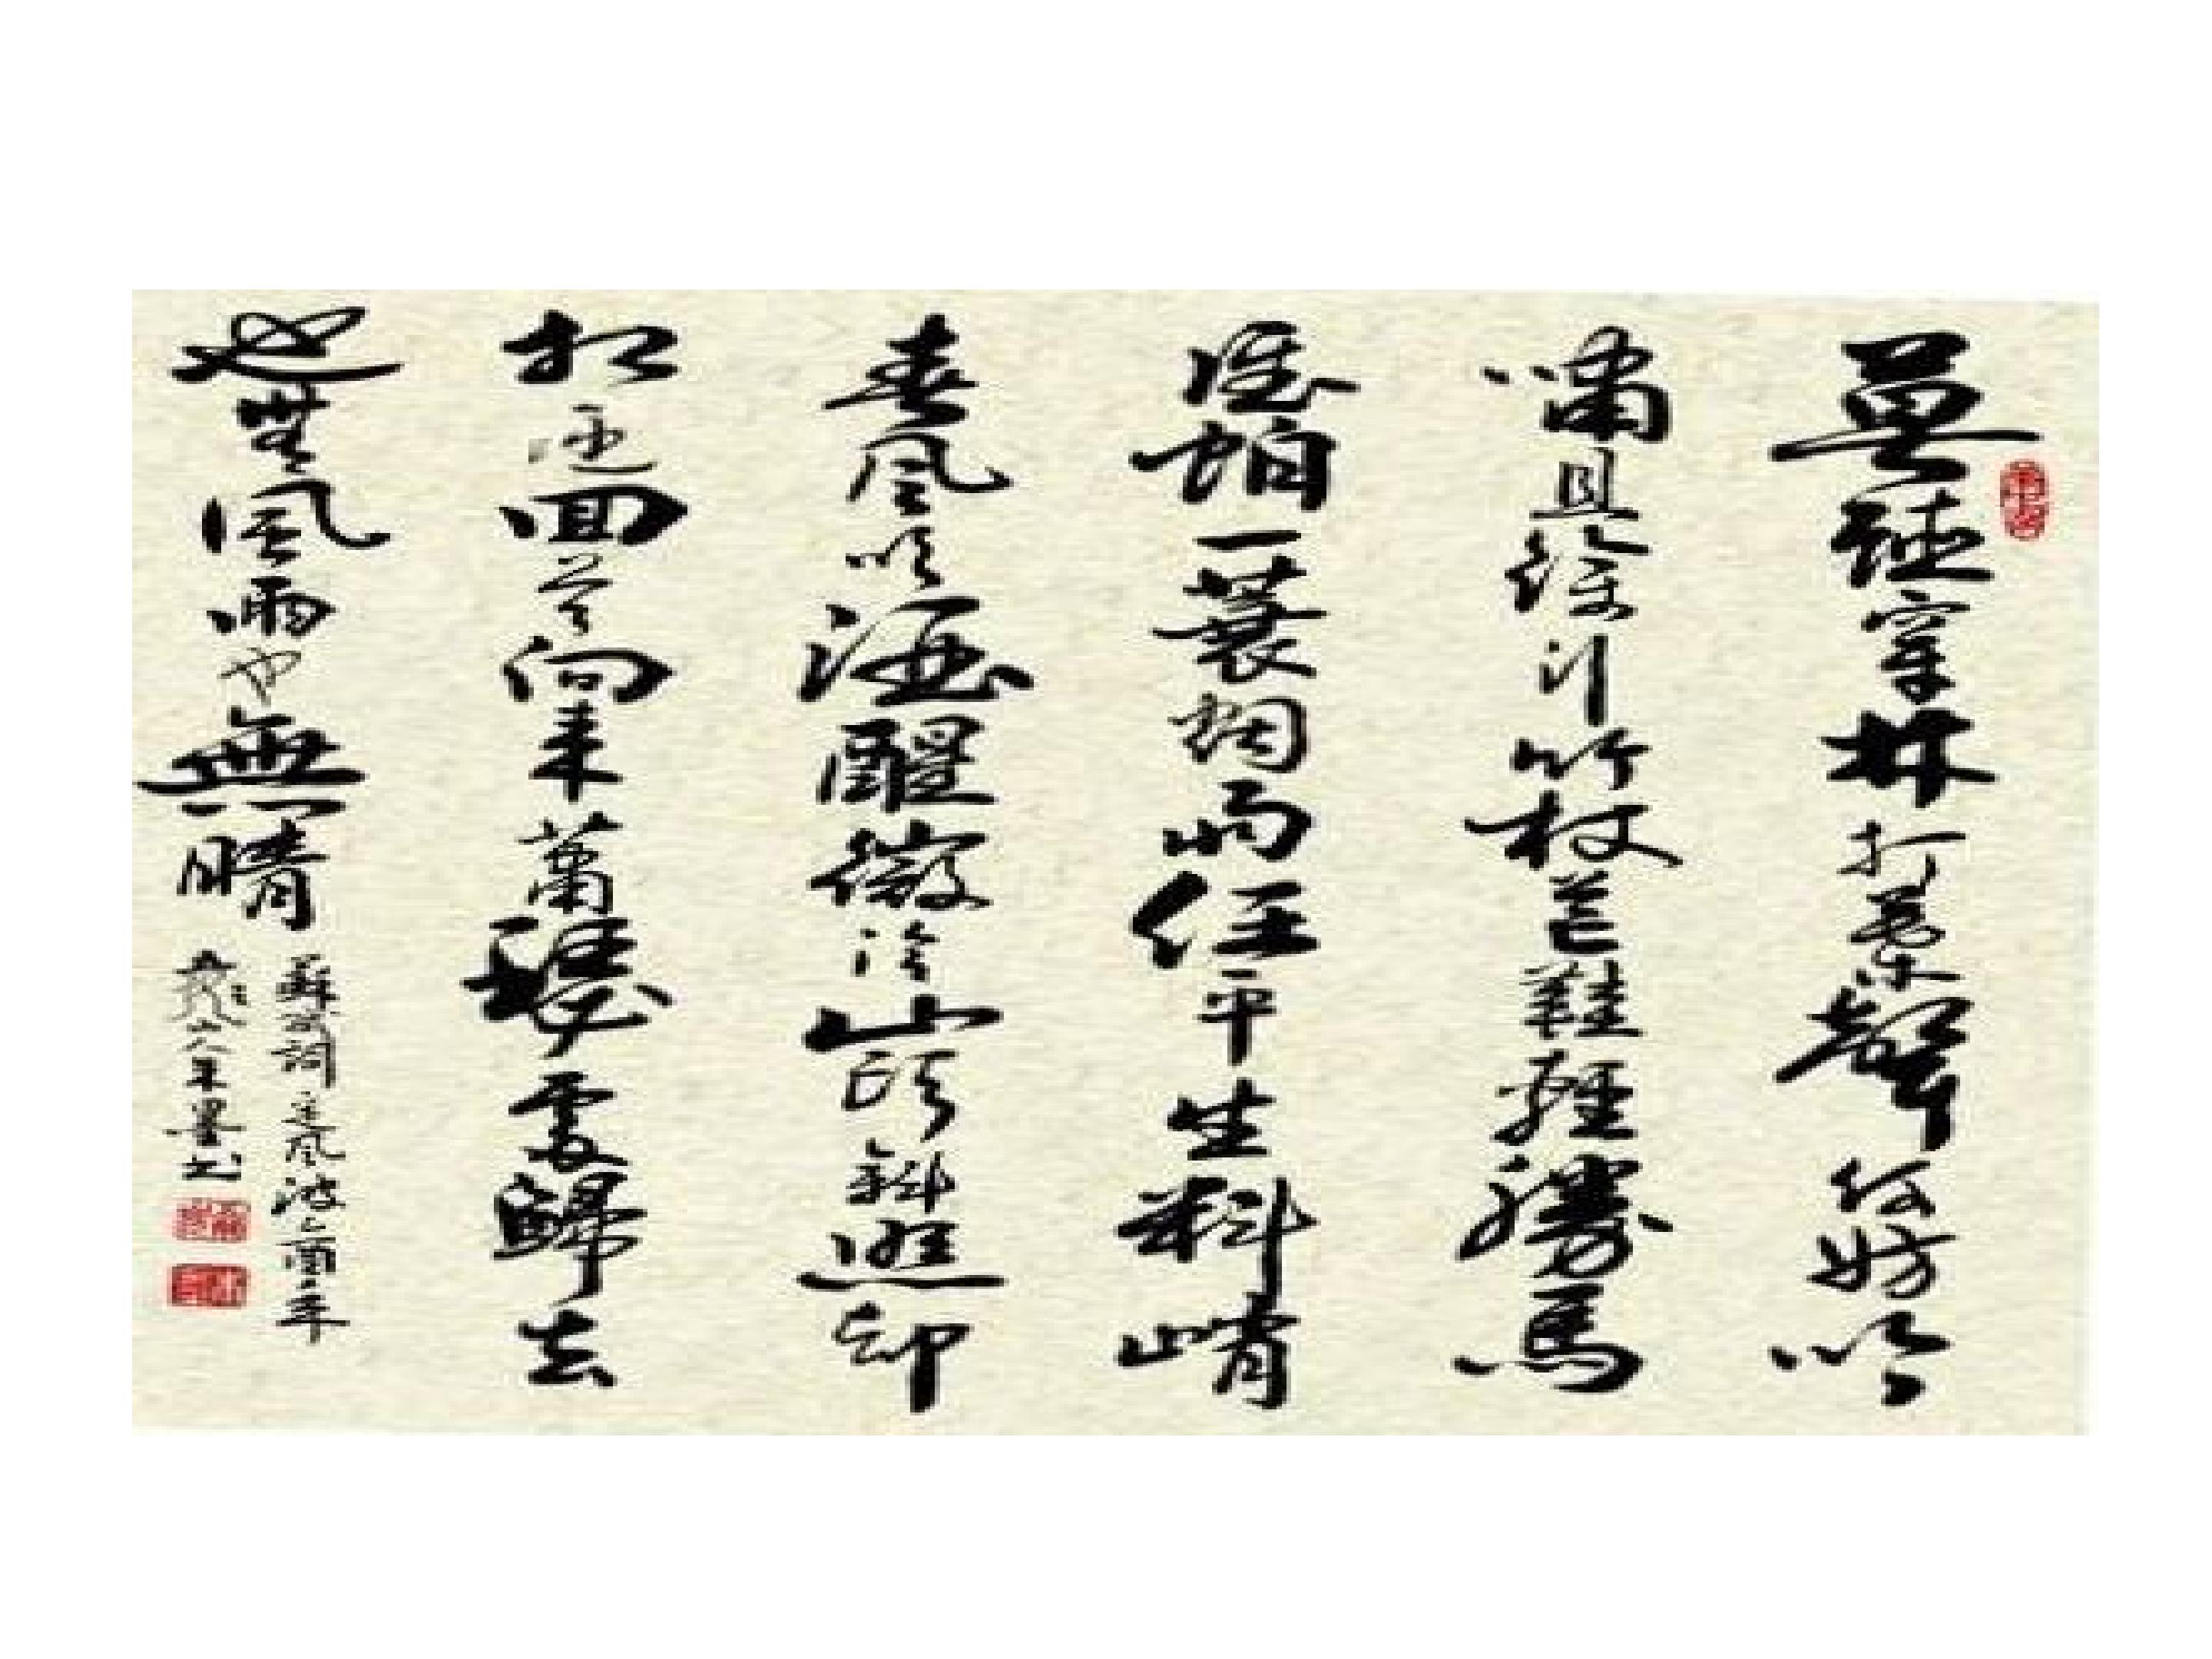 莫聽穿林打葉聲何妨吟
嘯且徐行竹杖芒鞋輕勝馬
誰怕一蓑烟雨任平生料峭
春風吹酒醒微冷山頭斜照却
相迎回首向来蕭瑟處歸去
也無風雨也無晴
蘇軾詞定風波乙酉年
墨书